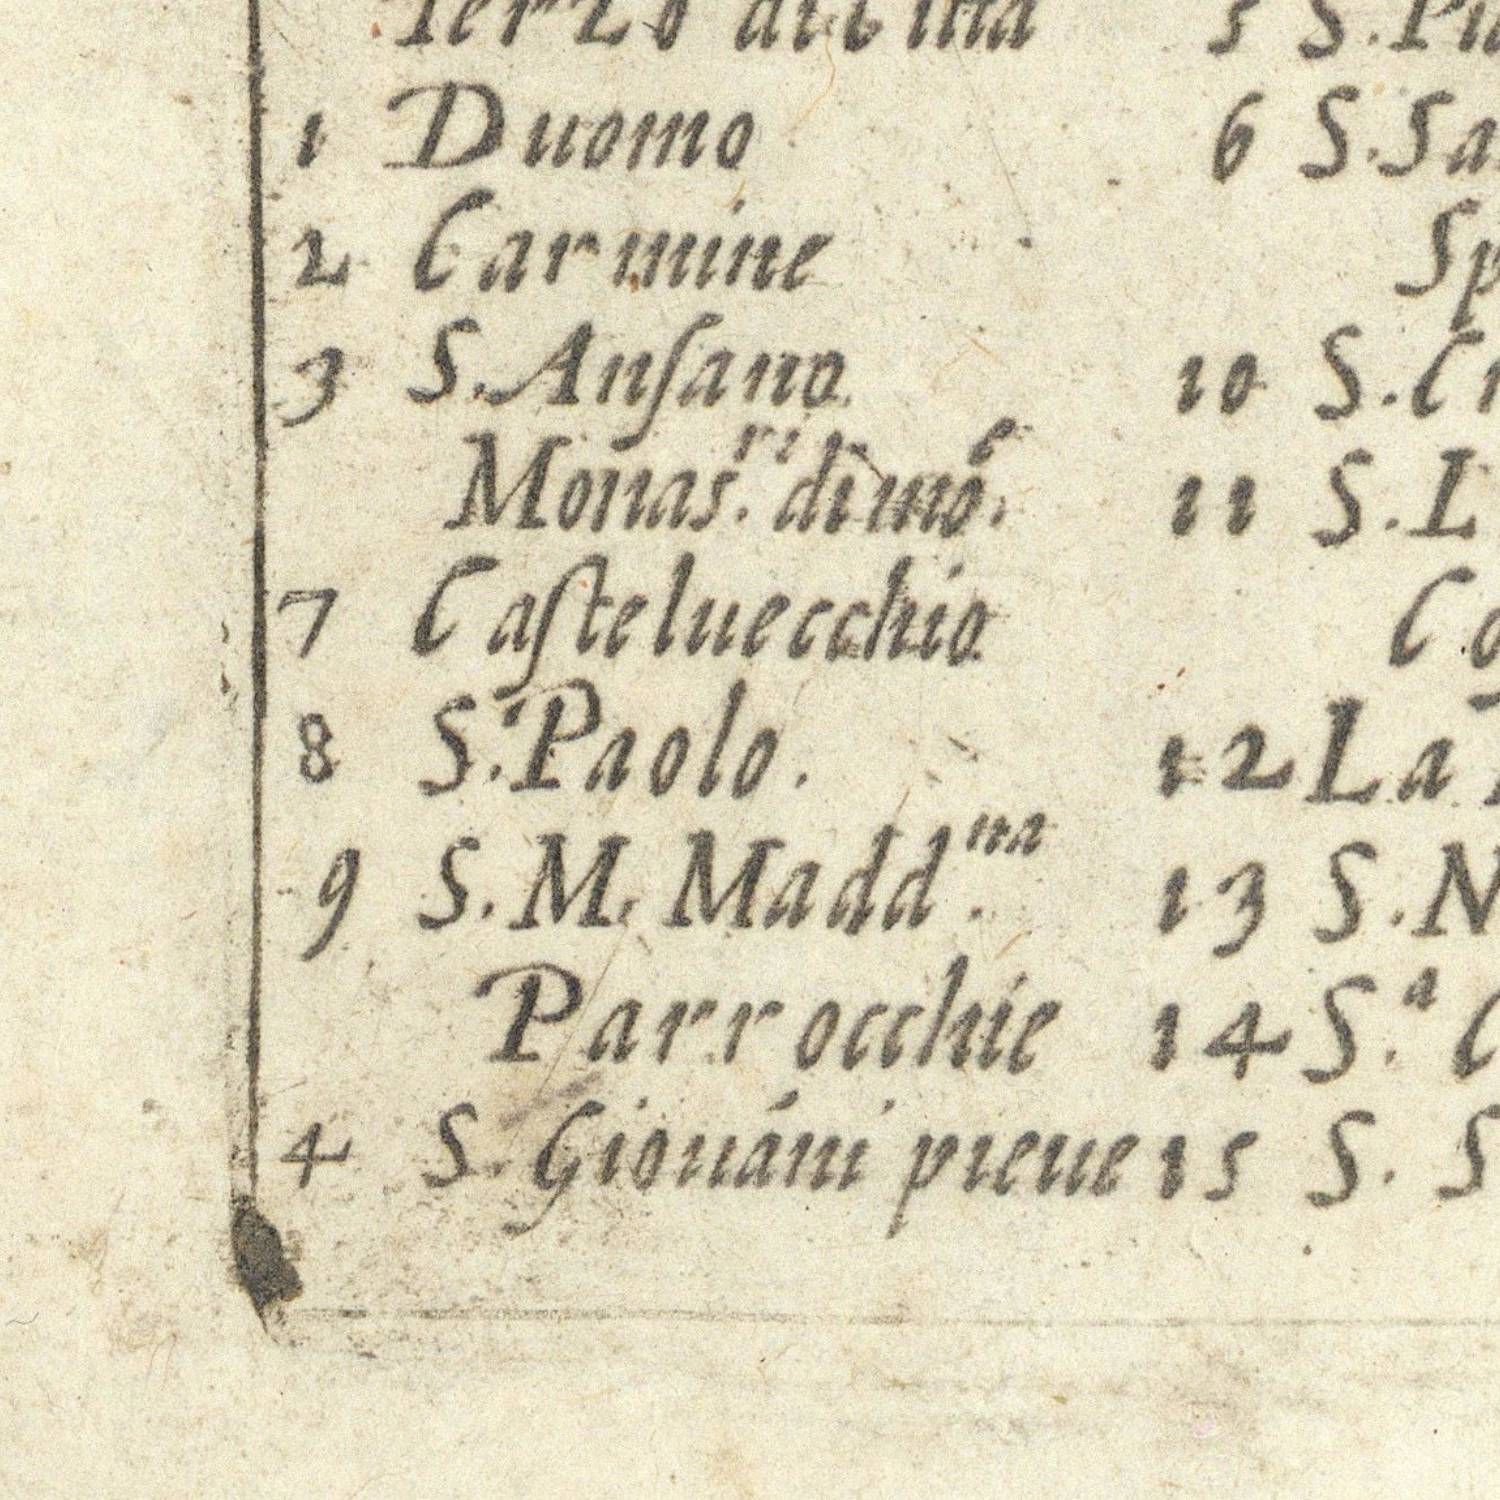 Terzo di Citta
1 Duomo
2 Carmine
3 S. Anſano
Monas.ri di mo.e
7 Caſteluecchio
8 S. Paolo.
9 S. M. Madd.na
Parrocchie
4 S. Giouáni pieue
5 S.
6 S.
10 S.
11 S.
12 La
13 S.
14 S.a
15 S.